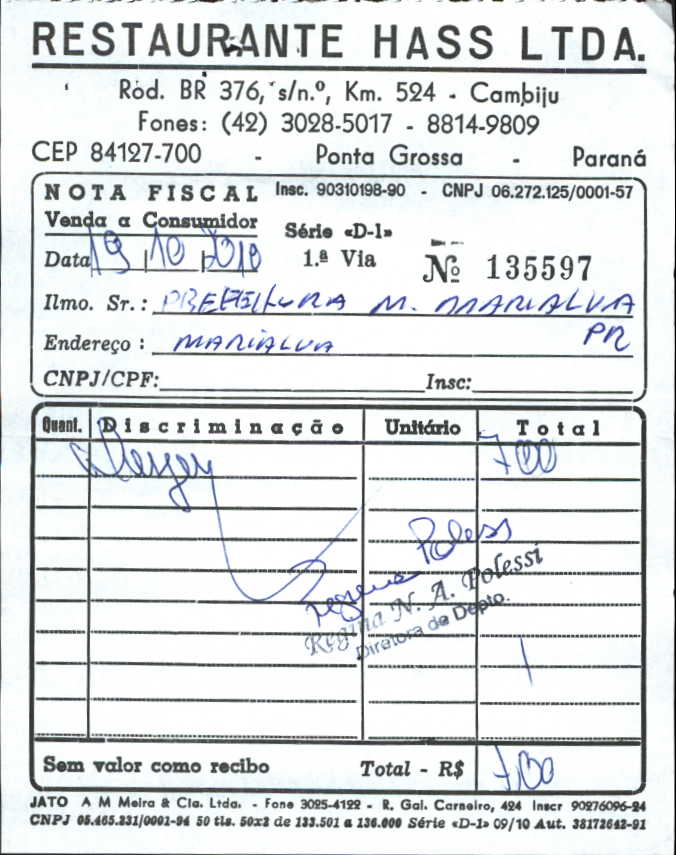 RESTAURANTE HASS LTDA.
Ród. BR 376, s/n.º, Km. 524 - Cambiju
Fones: (42) 3028-5017 - 8814-9809
CEP 84127-700 - Ponta Grossa - Paraná
NOTA FISCAL Insc. 90310198-90 - CNPJ 06.272.125/0001-57
Venda a Consumidor
Série «D-1»
Data 19 10 2010 1.ª Via Nº 135597
Ilmo. Sr.: PREFEITURA M. MARIALVA
Endereço: MARIALVA PR
CNPJ/CPF: Insc:
Quant. Discriminação Unitário Total
700
Regina Poless
Regina N. A. Polessi
Diretora de Depto.
Sem valor como recibo Total - R$ 700
JATO A M Meira & Cia. Ltda. - Fone 3025-4122 - R. Gal. Carneiro, 424 Inscr 90276096-24
CNPJ 05.465.231/0001-94 50 tls. 50x2 de 133.501 a 136.000 Série «D-1» 09/10 Aut. 38172642-91